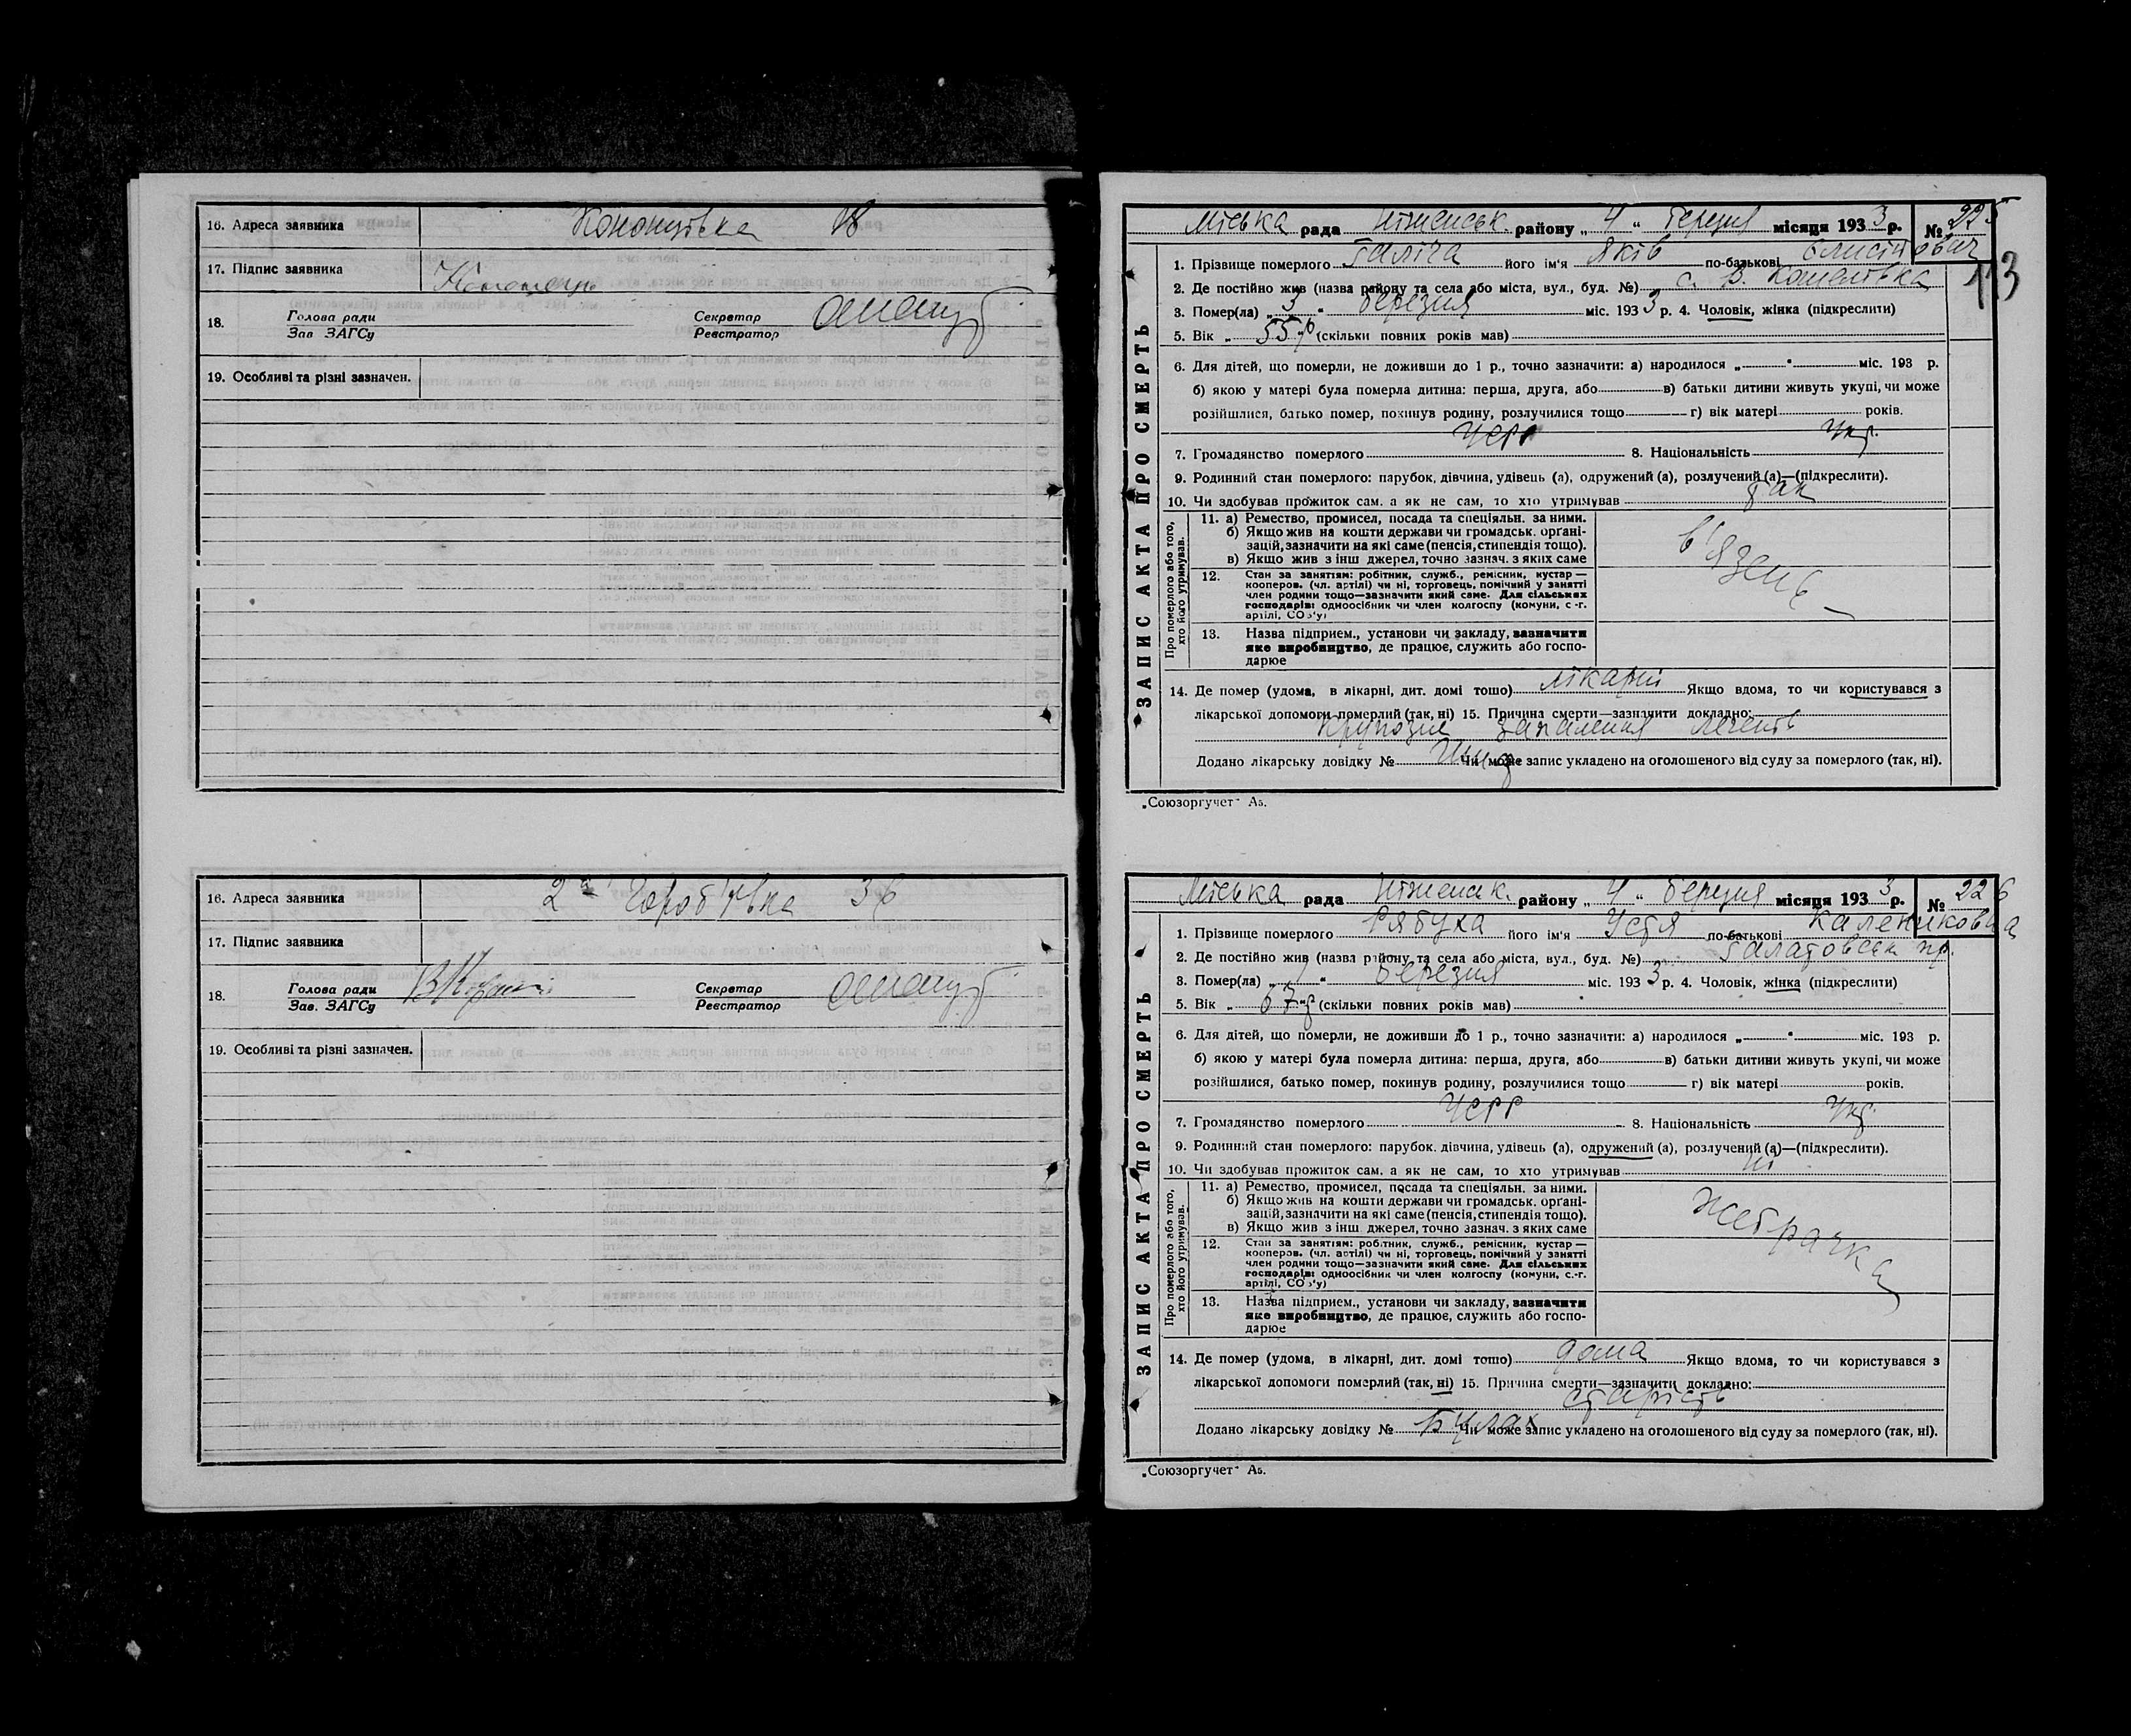 16. Адреса заявника
17. Підпис заявника
18. Голова ради Секретар
Зав ЗАГСу Реєстратор
19. Особливі та різні зазначен.
16. Адреса заявника 36
17. Підпис заявника
18. Голова ради Секретар
Зав. ЗАГСу Реєстратор
19. Особливі та різні зазначен.
ЗАПИС АКТА ПРО СМЕРТЬ
Міська рада Ніженськ. району „ 4 “ березня місяця 1933 р. № 225
1. Прізвище померлого Галіга його ім'я Яків по-батькові
113
2. Де постійно жив (назва району та села або міста, вул., буд. №) с. В. Кошелівка
3. Помер(ла) „ 3 “ березня міс. 1933 р. 4. Чоловік, жінка (підкреслити)
5. Вік „ 55 р “ (скільки повних років мав)
6. Для дітей, що померли, не доживши до 1 р., точно зазначити: а) народилося „ “ міс. 193 р.
б) якою у матері була померла дитина: перша, друга, або в) батьки дитини живуть укупі, чи може
розійшлися, батько помер, покинув родину, розлучилися тощо г) вік матері років.
7. Громадянство померлого УСРР 8. Національність Укр.
9. Родинний стан померлого: парубок, дівчина, удівець (а), одружений (а), розлучений (а)—(підкреслити).
10. Чи здобував прожиток сам, а як не сам, то хто утримував так
Про померлого або того, хто його утримував.
11. а) Ремество, промисел, посада та спеціяльн. за ними.
б) Якщо жив на кошти держави чи громадськ. органі-
зацій, зазначити на які саме (пенсія, стипендія тощо).
в) Якщо жив з інш джерел, точно зазнач. з яких саме
в'язень
12. Стан за заняттям: робітник, служб., ремісник, кустар—
кооперов. (чл. артілі) чи ні, торговець, помічний у занятті
член родини тощо—зазначити який саме. Для сільських
господарів: одноосібник чи член колгоспу (комуни, с.-г.
артілі, СОЗ'у)
13. Назва підприєм., установи чи закладу, зазначити
яке виробництво, де працює, служить або госпо-
дарює
14. Де помер (удома, в лікарні, дит. домі тощо) лікарні Якщо вдома, то чи користувався з
лікарської допомоги померлий (так, ні) 15. Причина смерти—зазначити докладно:
Крупозне запалення легенів
Додано лікарську довідку № Чи може запис укладено на оголошеного від суду за померлого (так, ні).
„Союзоргучет“ А5.
ЗАПИС АКТА ПРО СМЕРТЬ
Міська рада Ніженськ. району „ 4 “ березня місяця 1933 р. № 226
1. Прізвище померлого Рябуха його ім'я Устя по-батькові Калениковна
2. Де постійно жив (назва району та села або міста, вул., буд. №) Галатовськ пр.
3. Помер(ла) „ “ березня міс. 1933 р. 4. Чоловік, жінка (підкреслити)
5. Вік „ 67 р “ (скільки повних років мав)
6. Для дітей, що померли, не доживши до 1 р., точно зазначити: а) народилося „ “ міс. 193 р.
б) якою у матері була померла дитина: перша, друга, або в) батьки дитини живуть укупі, чи може
розійшлися, батько помер, покинув родину, розлучилися тощо г) вік матері років.
7. Громадянство померлого УСРР 8. Національність Укр.
9. Родинний стан померлого: парубок, дівчина, удівець (а), одружений (а), розлучений (а)—(підкреслити).
10. Чи здобував прожиток сам, а як не сам, то хто утримував ні
Про померлого або того, хто його утримував.
11. а) Ремество, промисел, посада та спеціяльн. за ними.
б) Якщо жив на кошти держави чи громадськ. органі-
зацій, зазначити на які саме (пенсія, стипендія тощо).
в) Якщо жив з інш джерел, точно зазнач. з яких саме
жебрачка
12. Стан за заняттям: робітник, служб., ремісник, кустар—
кооперов. (чл. артілі) чи ні, торговець, помічний у занятті
член родини тощо—зазначити який саме. Для сільських
господарів: одноосібник чи член колгоспу (комуни, с.-г.
артілі, СОЗ'у)
13. Назва підприєм., установи чи закладу, зазначити
яке виробництво, де працює, служить або госпо-
дарює
14. Де помер (удома, в лікарні, дит. домі тощо) дома Якщо вдома, то чи користувався з
лікарської допомоги померлий (так, ні) 15. Причина смерти—зазначити докладно:
старість
Додано лікарську довідку № Булах Чи може запис укладено на оголошеного від суду за померлого (так, ні).
„Союзоргучет“ А5.